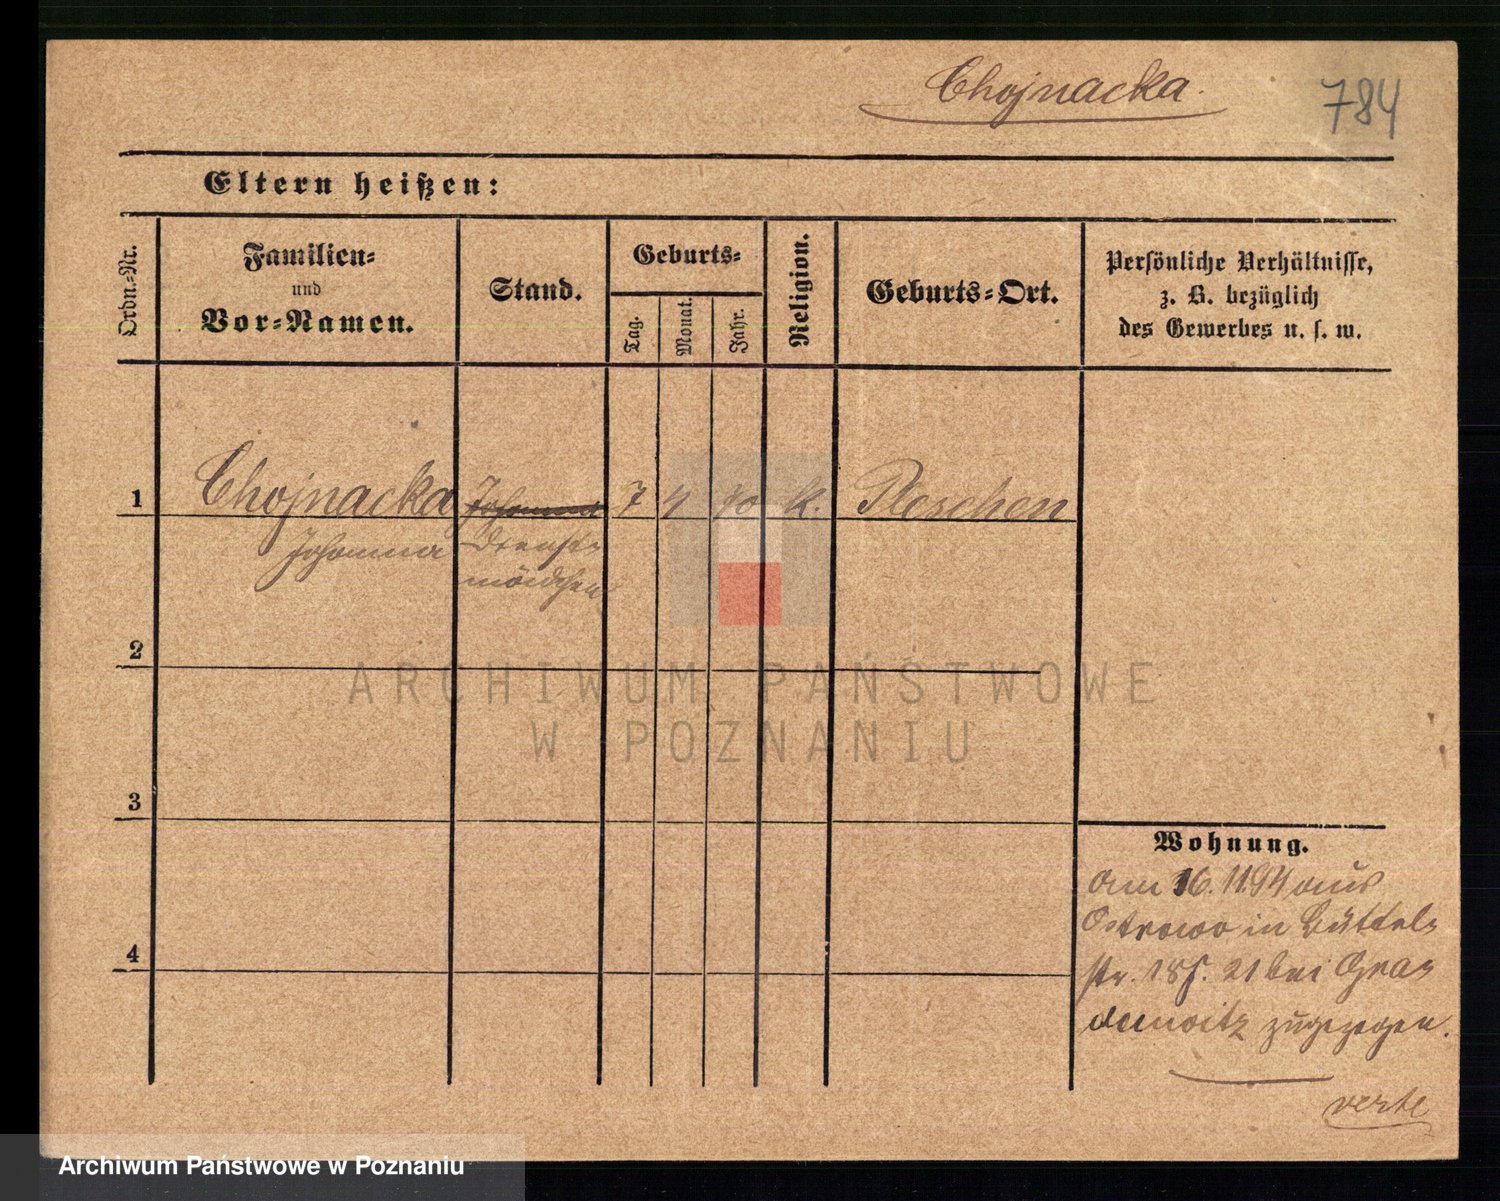 Chojnacka.
784
Eltern heißen:
Ordn.-Nr.
Familien-
und
Vor-Namen.
Stand.
Geburts-
Tag.
Monat.
Jahr.
Religion.
Geburts-Ort.
Persönliche Verhältnisse,
z. B. bezüglich
des Gewerbes u. s. w.
1 Chojnacka 7 4 70 K. Pleschen
Johanna Dienst-
mädchen
2
3
4
Wohnung.
Am 16.11.94 aus
Ostrowo in Büttels
str. 18 21 bei
zugezogen.
verte
ARCHIWUM PAŃSTWOWE
W POZNANIU
Archiwum Państwowe w Poznaniu